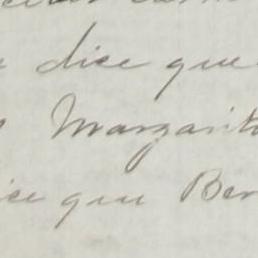 dice que
Margarit
ice que Ber